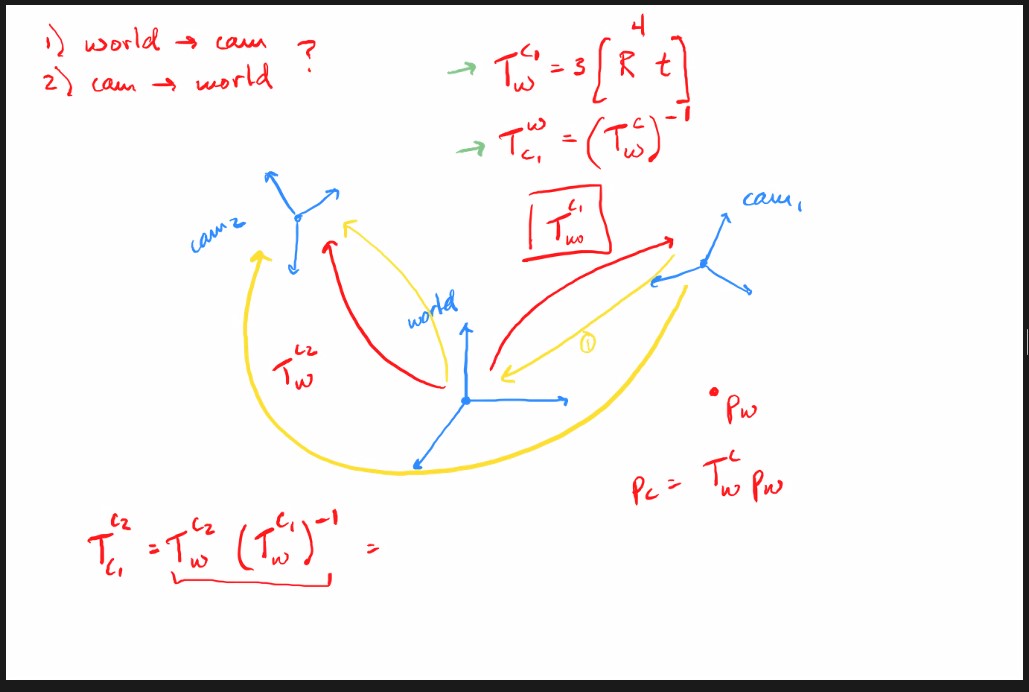 1) world → cam ?
2) cam → world
→ T_w^{c_1} = 3 [R t] 4
→ T_{c_1}^w = (T_w^c)^{-1}
T_w^{c_1}
cam_1
cam_2
world
①
T_w^{c_2}
P_w
P_c = T_w^c P_w
T_{c_1}^{c_2} = T_w^{c_2} (T_w^{c_1})^{-1} =